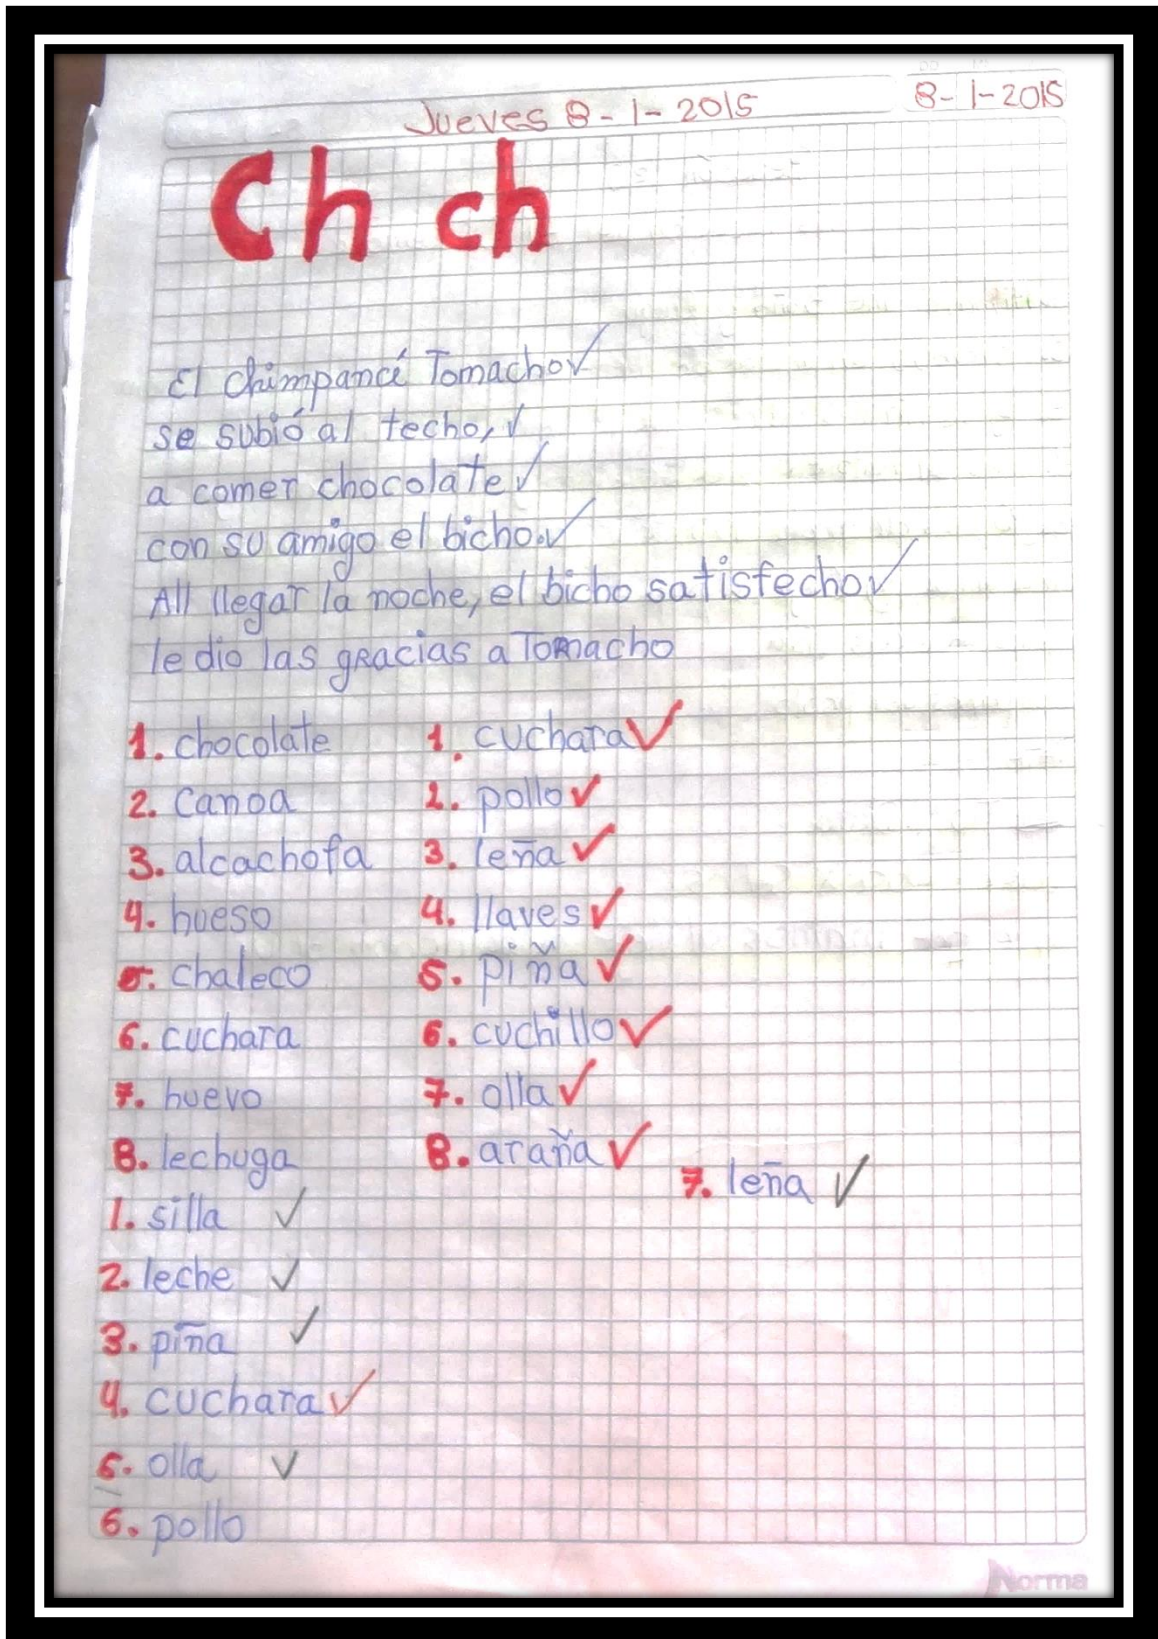 Jueves 8-1-2015
8-1-2015
Ch ch
El chimpancé Tomacho✓
se subió al techo,✓
a comer chocolate✓
con su amigo el bicho.✓
All llegar la noche, el bicho satisfecho✓
le dio las gracias a Tomacho
1. chocolate
2. canoa
3. alcachofa
4. hueso
5. chaleco
6. cuchara
7. huevo
8. lechuga
1. cuchara✓
2. pollo✓
3. leña✓
4. llaves✓
5. piña✓
6. cuchillo✓
7. olla✓
8. araña✓
1. silla ✓
2. leche ✓
3. piña ✓
4. cuchara✓
5. olla ✓
6. pollo
7. leña ✓
Norma